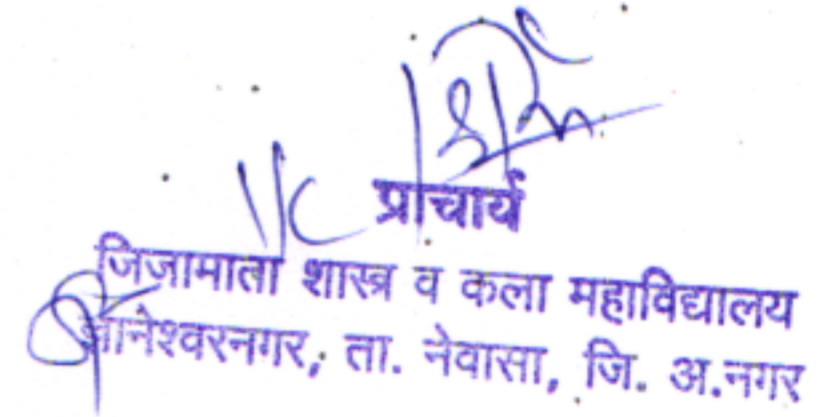 I/C प्राचार्य
जिजामाता शास्त्र व कला महाविद्यालय
ज्ञानेश्वरनगर, ता. नेवासा, जि. अ.नगर